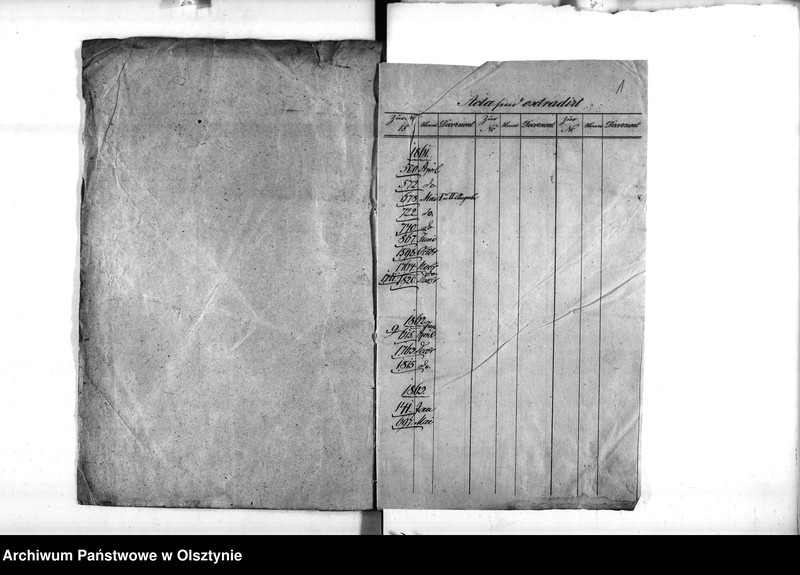 1
Acta sind extradirt
Zur № 18 Monat Decernent Zur № Monat Decernent Zur № Monat Decernent
1861.
560 April
572. do.
673. Mai
722. do.
740. do
867. Juni
1598. Octbr
1764. Novbr
1820. Decbr
1862.
9. Jan
615. April
1763. Decbr
1815. do.
1863.
141. Jan
697. Mai
Archiwum Państwowe w Olsztynie